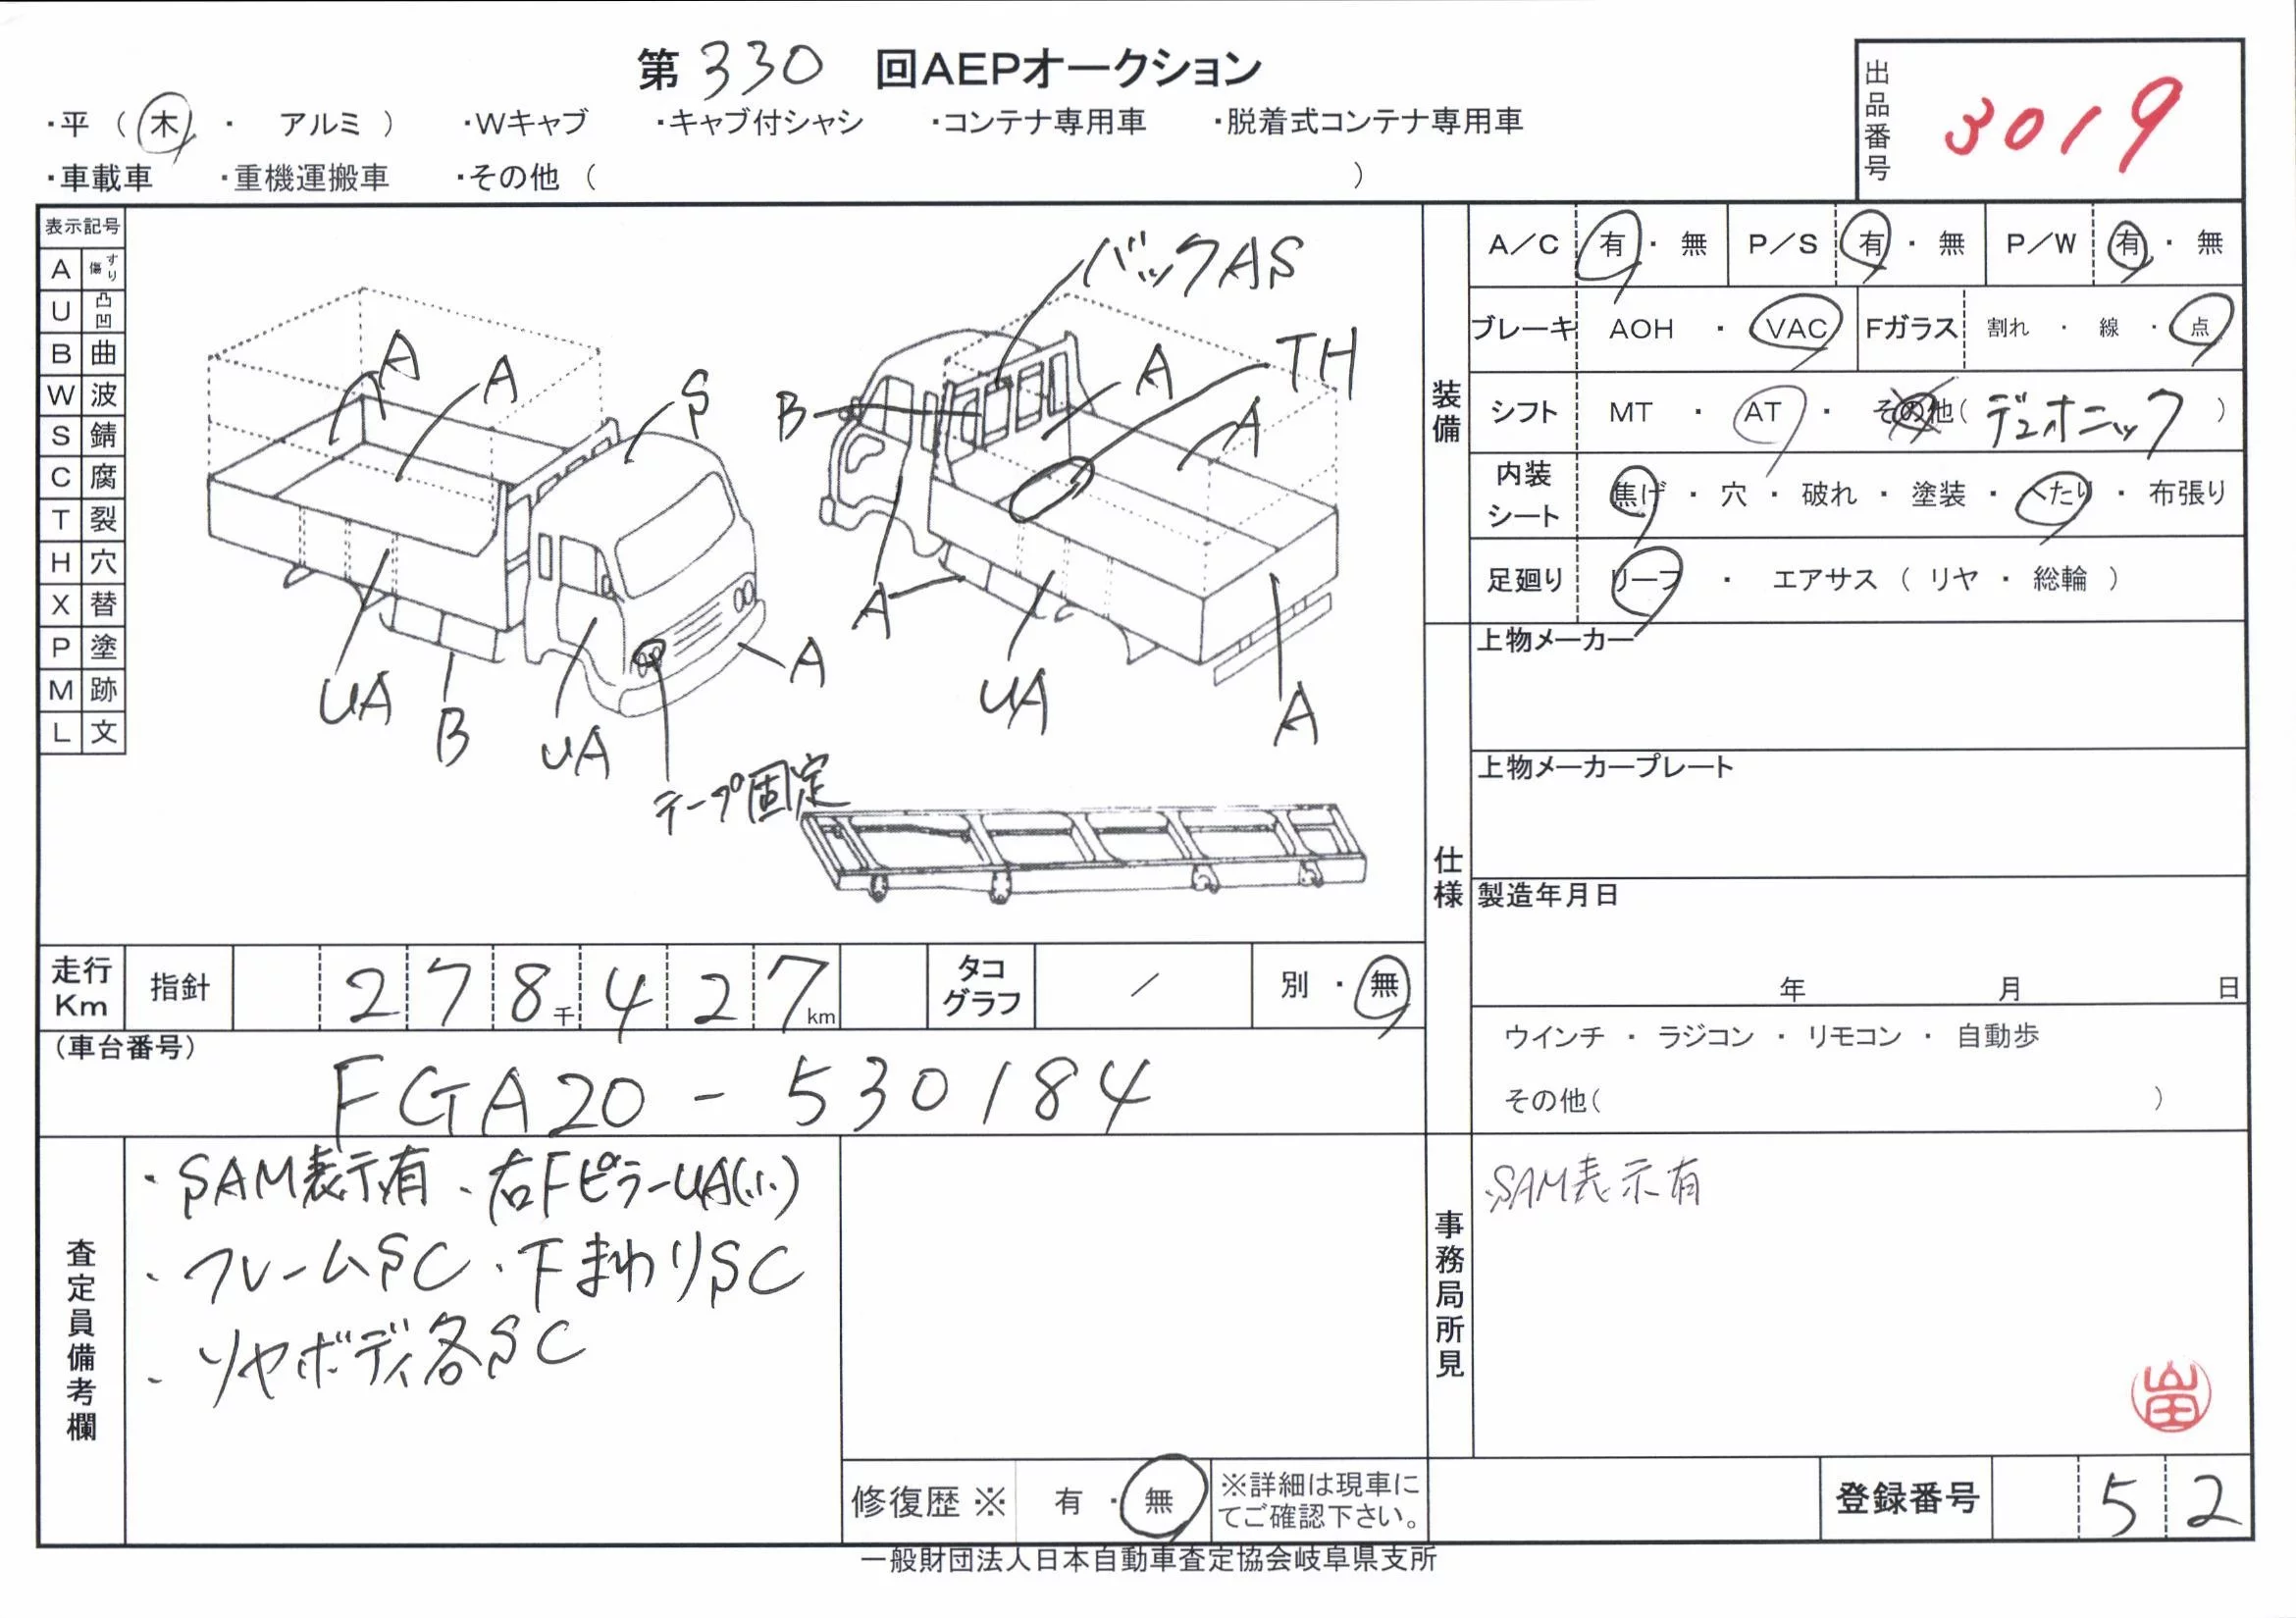 第 330 回AEPオークション
・平 （ 木 ・ アルミ ） ・Wキャブ ・キャブ付シャシ ・コンテナ専用車 ・脱着式コンテナ専用車
・車載車 ・重機運搬車 ・その他 （ ）
出品番号 3019
表示記号
A すり傷
U 凸凹
B 曲
W 波
S 錆
C 腐
T 裂
H 穴
X 替
P 塗
M 跡
L 文
バックAS
A
A
S
B
A
TH
A
UA
B
UA
A
A
UA
A
テープ固定
装備
A／C 有 ・ 無 P／S 有 ・ 無 P／W 有 ・ 無
ブレーキ AOH ・ VAC Fガラス 割れ ・ 線 ・ 点
シフト MT ・ AT ・ その他（ デュオニック ）
内装シート 焦げ ・ 穴 ・ 破れ ・ 塗装 ・ へたり ・ 布張り
足廻り リーフ ・ エアサス （ リヤ ・ 総輪 ）
仕様
上物メーカー
上物メーカープレート
製造年月日
年 月 日
ウインチ ・ ラジコン ・ リモコン ・ 自動歩
その他（ ）
走行Km 指針 2 7 8千 4 2 7km タコグラフ ／ 別 ・ 無
（車台番号）
FGA20 - 530184
査定員備考欄
・SAM表示有 ・右FピラーUA(小)
・フレームSC ・下まわりSC
・リヤボディ各SC
修復歴 ※ 有 ・ 無 ※詳細は現車にてご確認下さい。
事務局所見
・SAM表示有
登録番号 5 2
一般財団法人日本自動車査定協会岐阜県支所